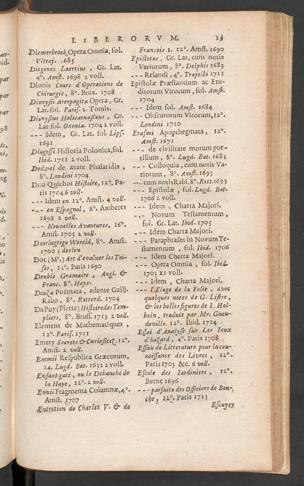 LIBRORUM. 13
Diemerbroek Opera Omnia, fol.
Ultraj. 1685
Diogenes Laertius, Gr. Lat.
4°. Amst. 1698 2 voll.
Dionis Cours d'Operations de
Chirurgie, 8°. Brux. 1708
Dionysii Areopagita Opera, Gr.
Lat. fol. Paris. 2 Tomis.
Dionysius Halicarnasseus, Gr.
Lat. fol. Oxonia. 1704 2 voll.
--- Idem, Gr. Lat. fol. Lips.
1691
Dlugossi Historia Polonica, fol.
Ibid. 1711 2 voll.
Dodwel de ætate Phalaridis,
8°. Londini 1704
Don Quichot Histoire, 12°. Pa-
ris 1704 6 voll.
--- Idem en 12°. Amst. 4 voll.
--- en Espagnol, 8°. Amberes
1698 2 voll.
--- Nouvelles Avantures, 16°.
Amst. 1705 2 voll.
Doorlugtige Wereld, 8°. Amst.
1700 3 deelen
Dot (M.) Art d'evaluer les Toi-
ses, 12°. Paris 1690
Double Gramaire, Angl. &
Franc. 8°. Haye.
Douza Poëmata, edente Guilj.
Rabo, 8°. Rotterd. 1704
Du Puy (Pierre) Histoire des Tem-
pliers, 8°. Bruss. 1713 2 voll.
Elemens de Mathematiques,
12°. Paris. 1711
Emery Secrets & Curiositez, 12°.
Amst. 2 voll.
Emmii Respublica Græcorum,
24. Lugd. Bat. 1632 2 voll.
Enfant gaté, ou le Debauché de
la Haye, 12°. 2 voll.
Ennii Fragmenta Columnæ, 4°.
Amst. 1707
Entretien de Charles V. & de
Francois 1. 12°. Amst. 1690
Epictetus, Gr. Lat. cum notis
Variorum, 8°. Delphis 1683
--- Relandi, 4°. Trajecti 1711
Epistolæ Præstantium ac Eru-
ditorum Virorum, fol. Amst.
1704
--- Idem fol. Amst. 1684
--- Obscurorum Virorum, 12°.
Londini 1710
Erasmi Apopthegmata, 12°.
Amst. 1671
--- de civilitate morum pue-
rilium, 8°. Lugd. Bat. 1682
--- Colloquia, cum notis Va-
riorum, 8°. Amst. 1693
--- cum notis Rabi, 8°. Rott. 1693
--- Epistolæ, fol. Lugd. Bat.
1706 2 voll.
--- Idem, Charta Majori.
--- Novum Testamentum,
fol. Gr. Lat. Ibid. 1705
--- Idem Charta Majori.
--- Paraphrases in Novum Te-
stamentum, fol. Ibid. 1706
--- Idem Charta Majori.
--- Opera Omnia, fol. Ibid.
1703 XI voll.
--- Idem, Charta Majori.
--- l'Eloge de la Folie, avec
quelques notes de G. Listre,
& les belles figures de I. Hol-
bein, traduit par Mr. Gueu-
deville. 12°. Ibid. 1714
Essai d'Analyse sur Les Jeux
d'hazard, 4°. Paris 1708
Essais de Litterature pour la con-
noissance des Livres, 12°.
Paris 1703 &c. 6 voll.
Escole des Jardiniers, 12°.
Berne 1696
--- parfaite des Officiers de Bou-
che, 12°. Paris 1713
Escuyer